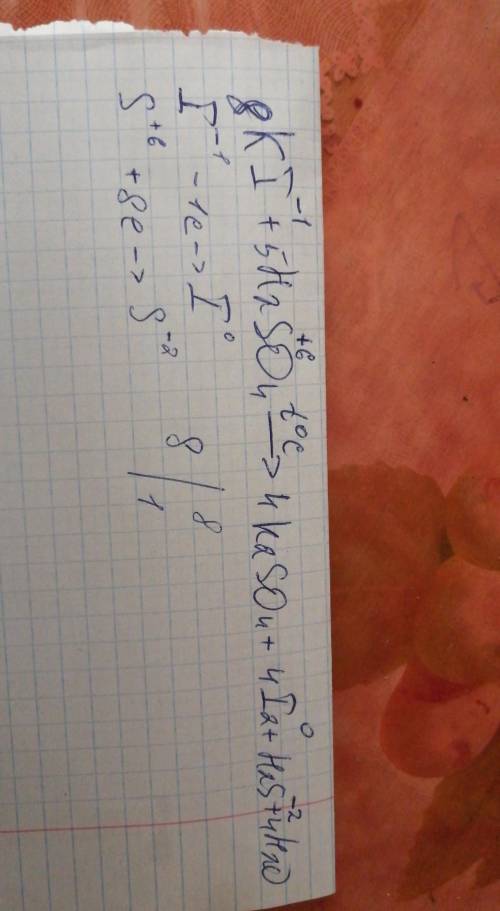 8KI⁻¹ + 5H₂S⁺⁶O₄ —t°C→ 4K₂SO₄ + 4I₂⁰ + H₂S⁻² + 4H₂O
I⁻¹ - 1e -> I⁰ | 8
8
S⁺⁶ + 8e -> S⁻² | 1